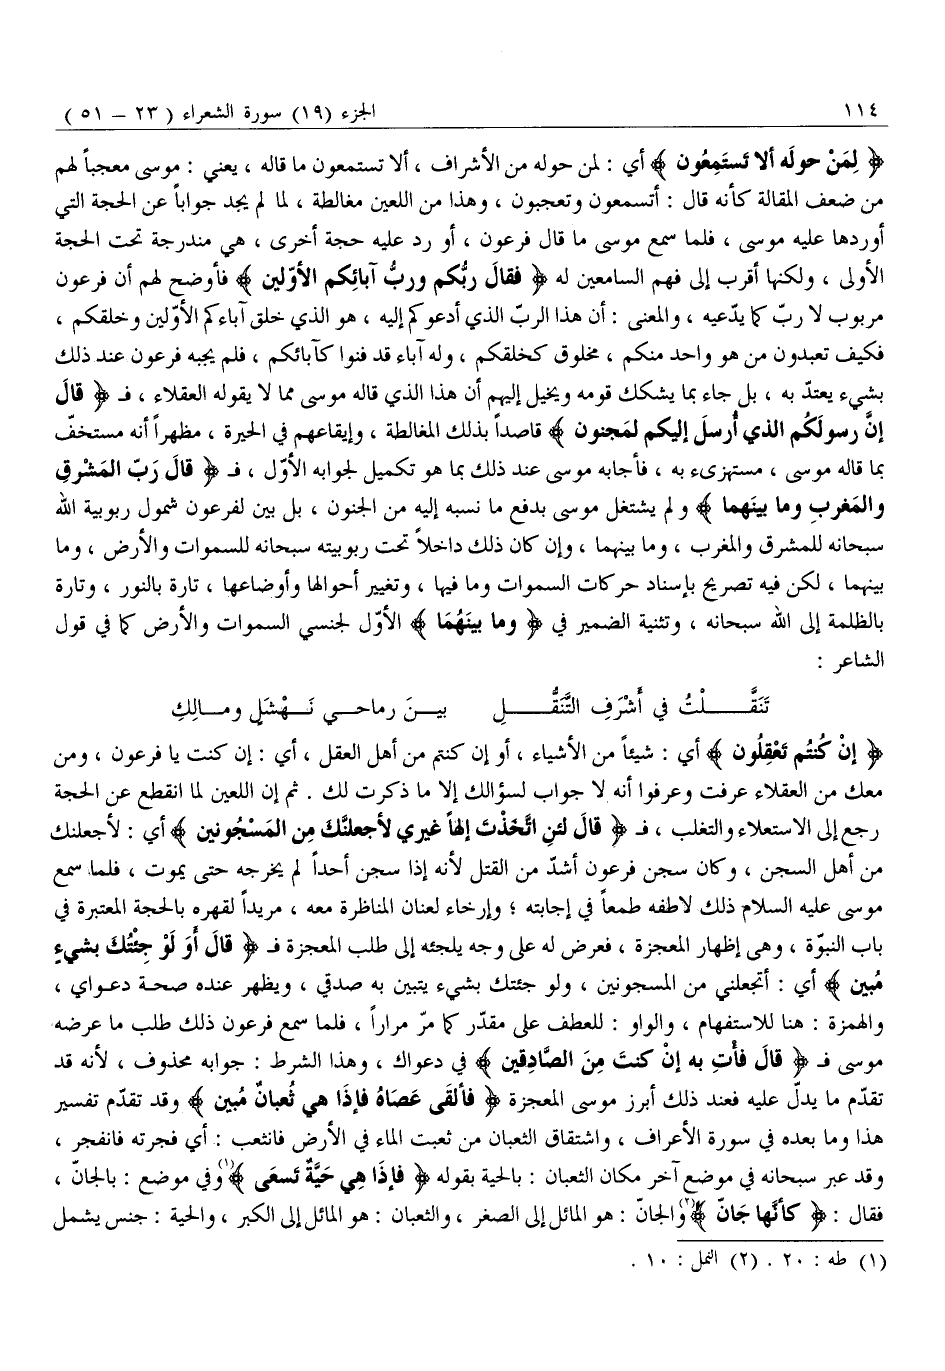 ١١٤ الجزء (١٩) سورة الشعراء ( ٢٣ – ٥١ )
﴿ لِمَنْ حولَه ألا تَستَمِعُون ﴾ أي : لمن حوله من الأشراف ، ألا تستمعون ما قاله ، يعني : موسى معجباً لهم
من ضعف المقالة كأنه قال : أتسمعون وتعجبون ، وهذا من اللعين مغالطة ، لما لم يجد جواباً عن الحجة التي
أوردها عليه موسى ، فلما سمع موسى ما قال فرعون ، أو رد عليه حجة أخرى ، هي مندرجة تحت الحجة
الأولى ، ولكنها أقرب إلى فهم السامعين له ﴿ فقالَ ربُّكم وربُّ آبائِكم الأوّلين ﴾ فأوضح لهم أن فرعون
مربوب لا ربّ كما يدّعيه ، والمعنى : أن هذا الربّ الذي أدعوكم إليه ، هو الذي خلق آباءكم الأوّلين وخلقكم ،
فكيف تعبدون من هو واحد منكم ، مخلوق كخلقكم ، وله آباء قد فنوا كآبائكم ، فلم يجبه فرعون عند ذلك
بشيء يعتدّ به ، بل جاء بما يشكك قومه ويخيل إليهم أن هذا الذي قاله موسى مما لا يقوله العقلاء ، فـ ﴿ قالَ
إنَّ رسولَكُم الذي أُرسلَ إليكم لمَجنون ﴾ قاصداً بذلك المغالطة ، وإيقاعهم في الحيرة ، مظهراً أنه مستخفّ
بما قاله موسى ، مستهزىء به ، فأجابه موسى عند ذلك بما هو تكميل لجوابه الأوّل ، فـ ﴿ قالَ رَبّ المَشْرقِ
والمَغربِ وما بينَهما ﴾ ولم يشتغل موسى بدفع ما نسبه إليه من الجنون ، بل بين لفرعون شمول ربوبية الله
سبحانه للمشرق والمغرب ، وما بينهما ، وإن كان ذلك داخلاً تحت ربوبيته سبحانه للسموات والأرض ، وما
بينهما ، لكن فيه تصريح بإسناد حركات السموات وما فيها ، وتغيير أحوالها وأوضاعها ، تارة بالنور ، وتارة
بالظلمة إلى الله سبحانه ، وتثنية الضمير في ﴿ وما بينَهُمَا ﴾ الأوّل لجنسي السموات والأرض كما في قول
الشاعر :
تَنَقَّـــــلْتُ في أَشْرَفِ التَّنَقُّـــــلِ بيـنَ رماحـي نَـهْشَلٍ ومـالِكِ
﴿ إنْ كُنتُم تَعْقِلُون ﴾ أي : شيئاً من الأشياء ، أو إن كنتم من أهل العقل ، أي : إن كنت يا فرعون ، ومن
معك من العقلاء عرفت وعرفوا أنه لا جواب لسؤالك إلا ما ذكرت لك . ثم إن اللعين لما انقطع عن الحجة
رجع إلى الاستعلاء والتغلب ، فـ ﴿ قالَ لئنِ اتَّخَذْتَ إلهاً غيري لأجعلنَّكَ مِن المَسْجُونين ﴾ أي : لأجعلنك
من أهل السجن ، وكان سجن فرعون أشدّ من القتل لأنه إذا سجن أحداً لم يخرجه حتى يموت ، فلما سمع
موسى عليه السلام ذلك لاطفه طمعاً في إجابته ؛ وإرخاء لعنان المناظرة معه ، مريداً لقهره بالحجة المعتبرة في
باب النبوّة ، وهى إظهار المعجزة ، فعرض له على وجه يلجئه إلى طلب المعجزة فـ ﴿ قالَ أَو لَوْ جِئْتُكَ بشيءٍ
مُبين ﴾ أي : أتجعلني من المسجونين ، ولو جئتك بشيء يتبين به صدقي ، ويظهر عنده صحة دعواي ،
والهمزة : هنا للاستفهام ، والواو : للعطف على مقدّر كما مرّ مراراً ، فلما سمع فرعون ذلك طلب ما عرضه
موسى فـ ﴿ قالَ فأْتِ به إنْ كنتَ مِنَ الصَّادِقين ﴾ في دعواك ، وهذا الشرط : جوابه محذوف ، لأنه قد
تقدّم ما يدلّ عليه فعند ذلك أبرز موسى المعجزة ﴿ فألقَى عَصَاهُ فإذَا هي ثُعبانٌ مُبين ﴾ وقد تقدّم تفسير
هذا وما بعده في سورة الأعراف ، واشتقاق الثعبان من ثعبت الماء في الأرض فانثعب : أي فجرته فانفجر ،
وقد عبر سبحانه في موضع آخر مكان الثعبان : بالحية بقوله ﴿ فإذَا هِي حَيَّةٌ تَسعَى ﴾(١) وفي موضع : بالجانّ ،
فقال : ﴿ كأنَّها جَانّ ﴾(٢) والجانّ : هو المائل إلى الصغر ، والثعبان : هو المائل إلى الكبر ، والحية : جنس يشمل
(١) طه : ٢٠ . (٢) النمل : ١٠ .